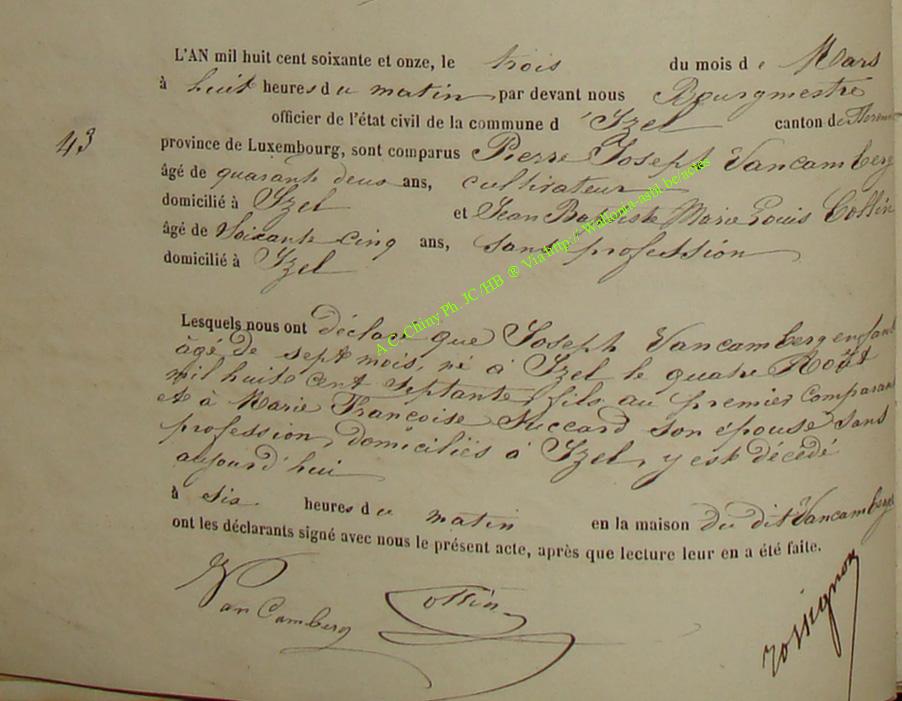 L'AN mil huit cent soixante et onze, le trois du mois d e Mars
à huit heures du matin par devant nous Bourgmestre
officier de l'état civil de la commune d 'Izel canton de
43
province de Luxembourg, sont comparus Pierre Joseph Vancamberg
âgé de quarante deux ans, cultivateur
domicilié à Izel et Jean Baptiste Marie Louis Collin
âgé de Soixante cinq ans, sans profession
domicilié à Izel
A.C. Chiny Ph. JC/HB ® Via http://Wallonia-asbl.be/actes
Lesquels nous ont déclaré que Joseph Vancamberg enfant
âgé de sept mois, né à Izel le quatre Août
mil huit cent septante, fils au premier Comparant
et à Marie Françoise Succard son epouse sans
profession, domiciliés à Izel, y est décédé
aujourd'hui
à six heures du matin en la maison du dit Vancamberg
ont les déclarants signé avec nous le présent acte, après que lecture leur en a été faite.
VanCamberg Collin
rossignon